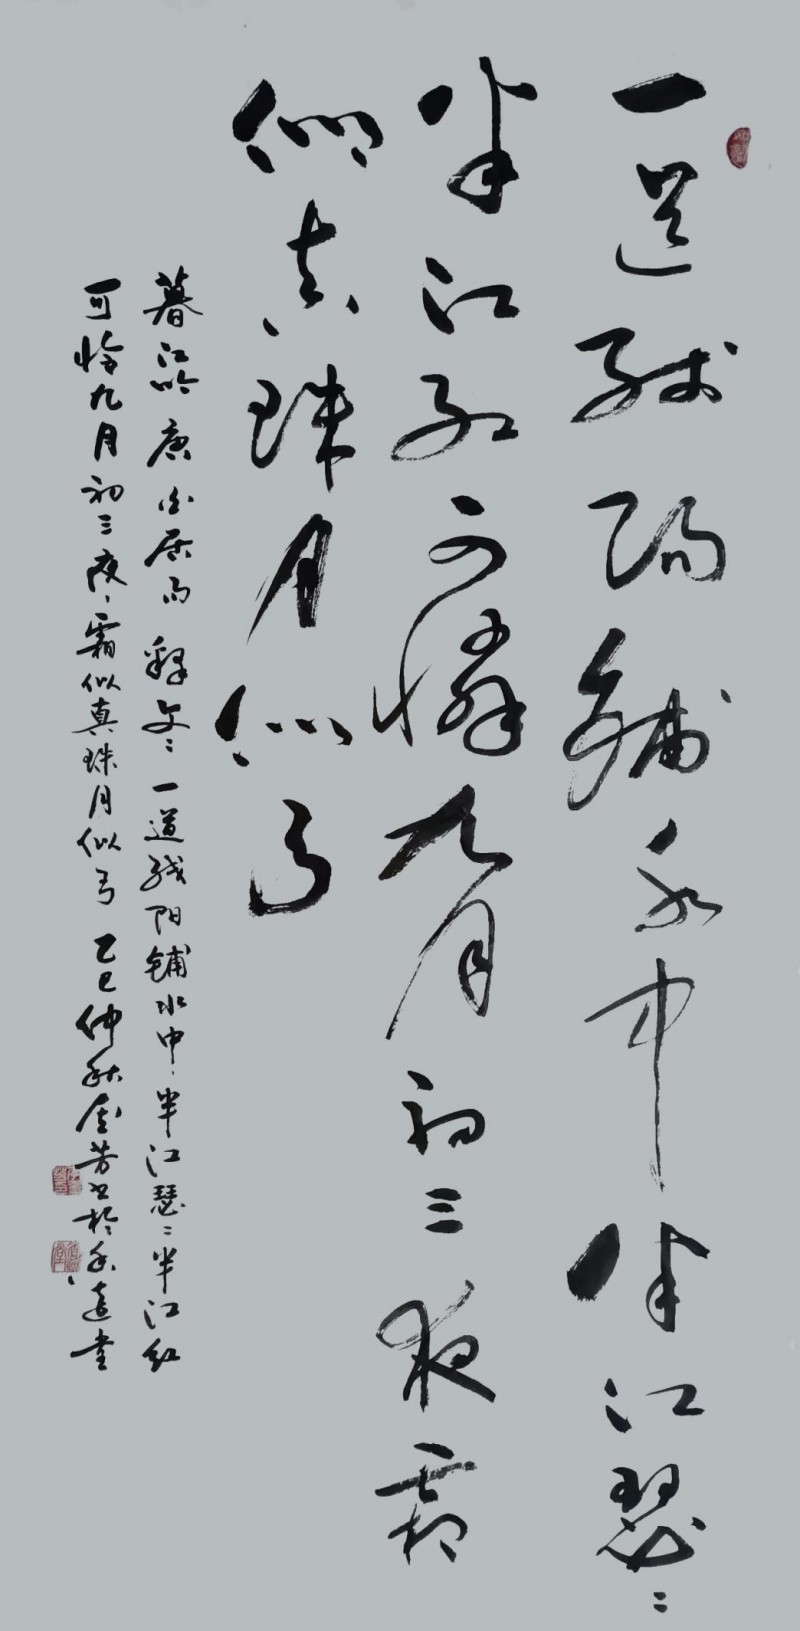 一道残陽鋪水中半江瑟〻
半江紅可憐九月初三夜霜
似真珠月似弓
暮江吟 唐 白居易 释文：一道残阳铺水中、半江瑟〻半江红
可怜九月初三夜、霜似真珠月似弓 乙巳仲秋 芳书於 远堂